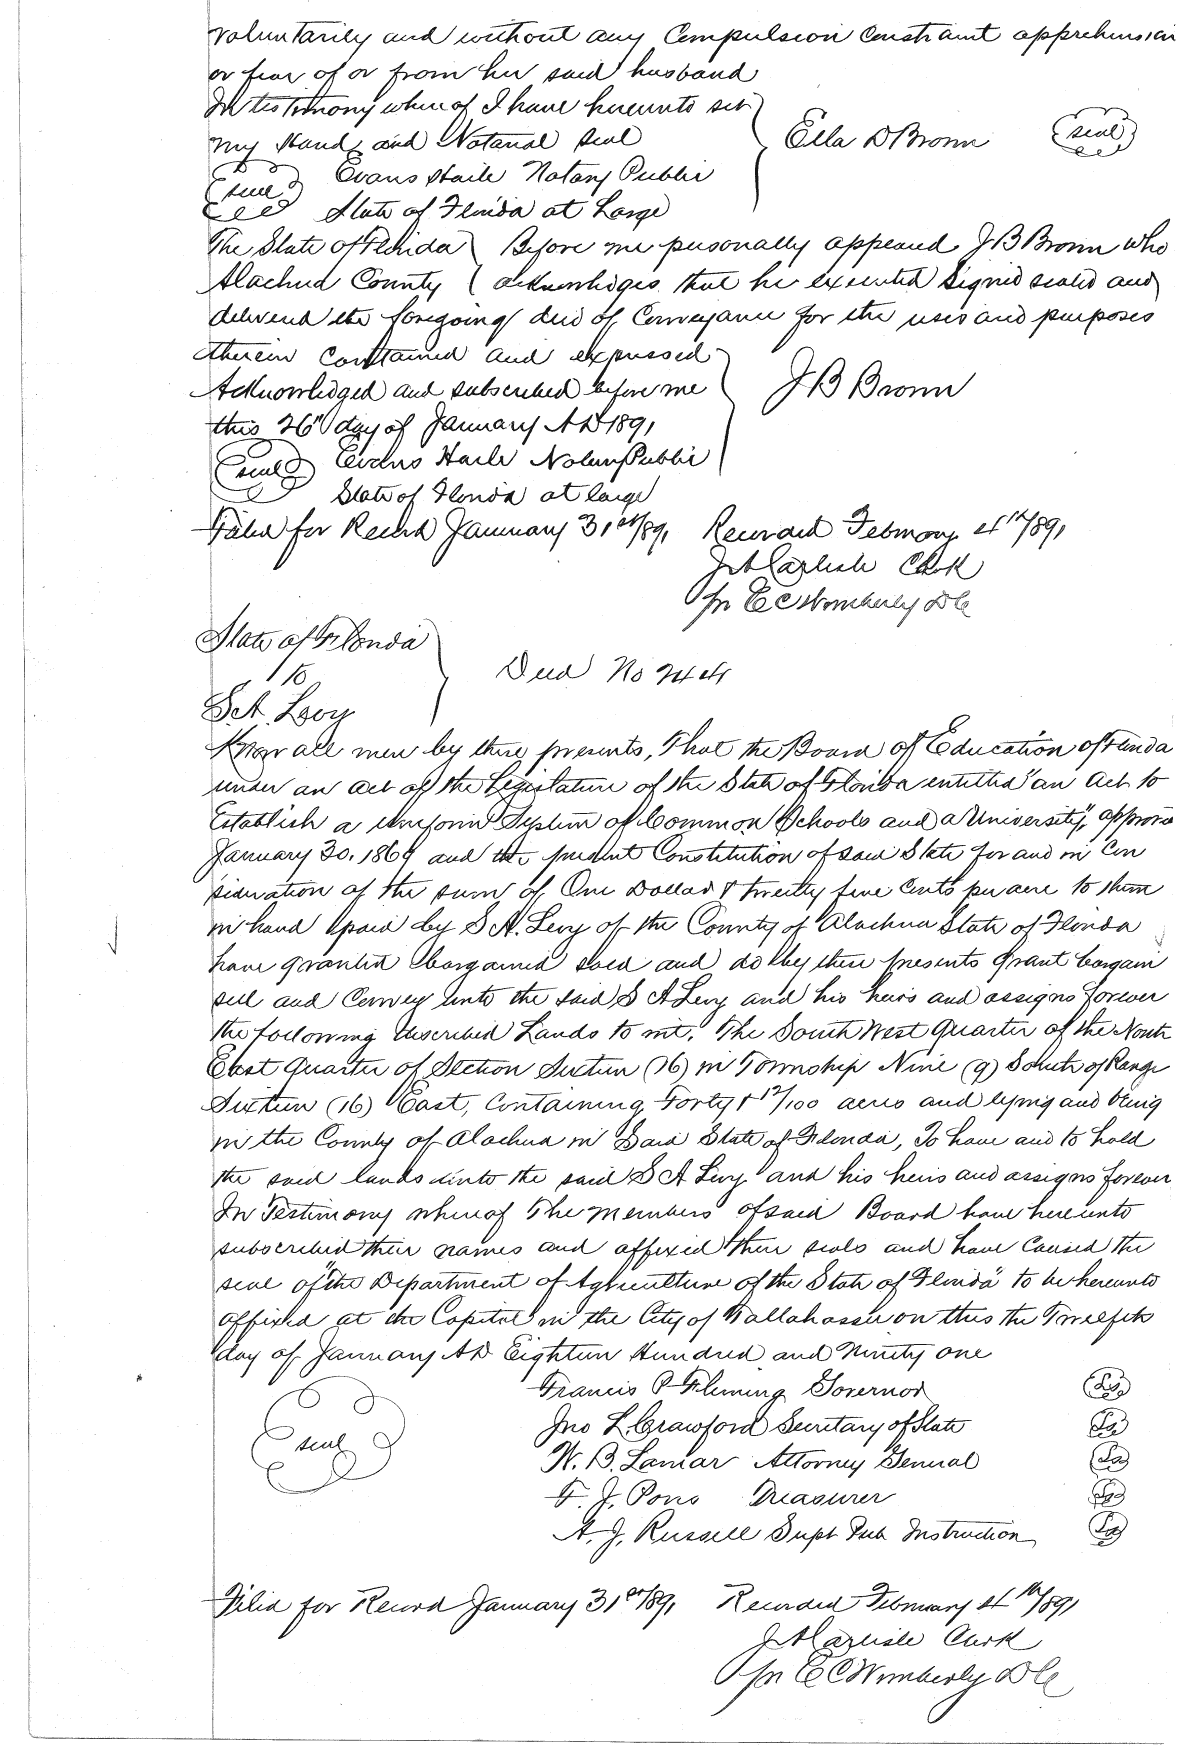 voluntarily and without any Compulsion Constraint apprehension
or fear of or from her said husband
In testimony whereof I have hereunto set
my Hand and Notarial seal
Ella D Bronn (seal)
(seal) Evans Haile Notary Public
State of Florida at Large
The State of Florida Before me personally appeared J B Bronn who
Alachua County acknowledges that he executed signed sealed and
delivered the foregoing deed of Conveyance for the uses and purposes
therein contained and expressed
Acknowledged and subscribed before me J B Bronn
this 26" day of January A D 1891
(seal) Evans Haile Notary Public
State of Florida at large
Filed for Record January 31st/891 Recorded February 4th/891
Carlisle Clerk
Pr E C Wimberly D C
State of Florida
To Deed No
S. A. Levy
Know all men by these presents, That the Board of Education of Florida
under an act of the Legislature of the State of Florida entitled "an act to
Establish a Uniform System of Common Schools and a University", approved
January 30, 1869 and the present Constitution of said State for and in Con
sideration of the sum of One Dollar & twenty five Cents per acre to them
in hand paid by S. A. Levy of the County of Alachua State of Florida
have granted bargained sold and do by these presents grant bargain
sell and Convey unto the said S A Levy and his heirs and assigns forever
the following described Lands to wit: The South West Quarter of the North
East Quarter of Section Sixteen (16) in Township Nine (9) South of Range
Sixteen (16) East, Containing Forty & /100 acres and lying and being
in the County of Alachua in Said State of Florida, To have and to hold
the said lands unto the said S A Levy and his heirs and assigns forever
In Testimony whereof The members of said Board have hereunto
subscribed their names and affixed their seals and have Caused the
seal of "the Department of Agriculture of the State of Florida" to be hereunto
affixed at the Capitol in the City of Tallahassee on this the Twelfth
day of January A D Eighteen Hundred and Ninety one
Francis P Fleming Governor (Ls)
Jno L Crawford Secretary of State (Ls)
(seal) W. B. Lamar Attorney General (Ls)
F. J. Pons Treasurer (Ls)
A. J. Russell Supt Pub Instruction (Ls)
Filed for Record January 31st/891 Recorded February 4th/891
Carlisle Clerk
Pr E C Wimberly D C